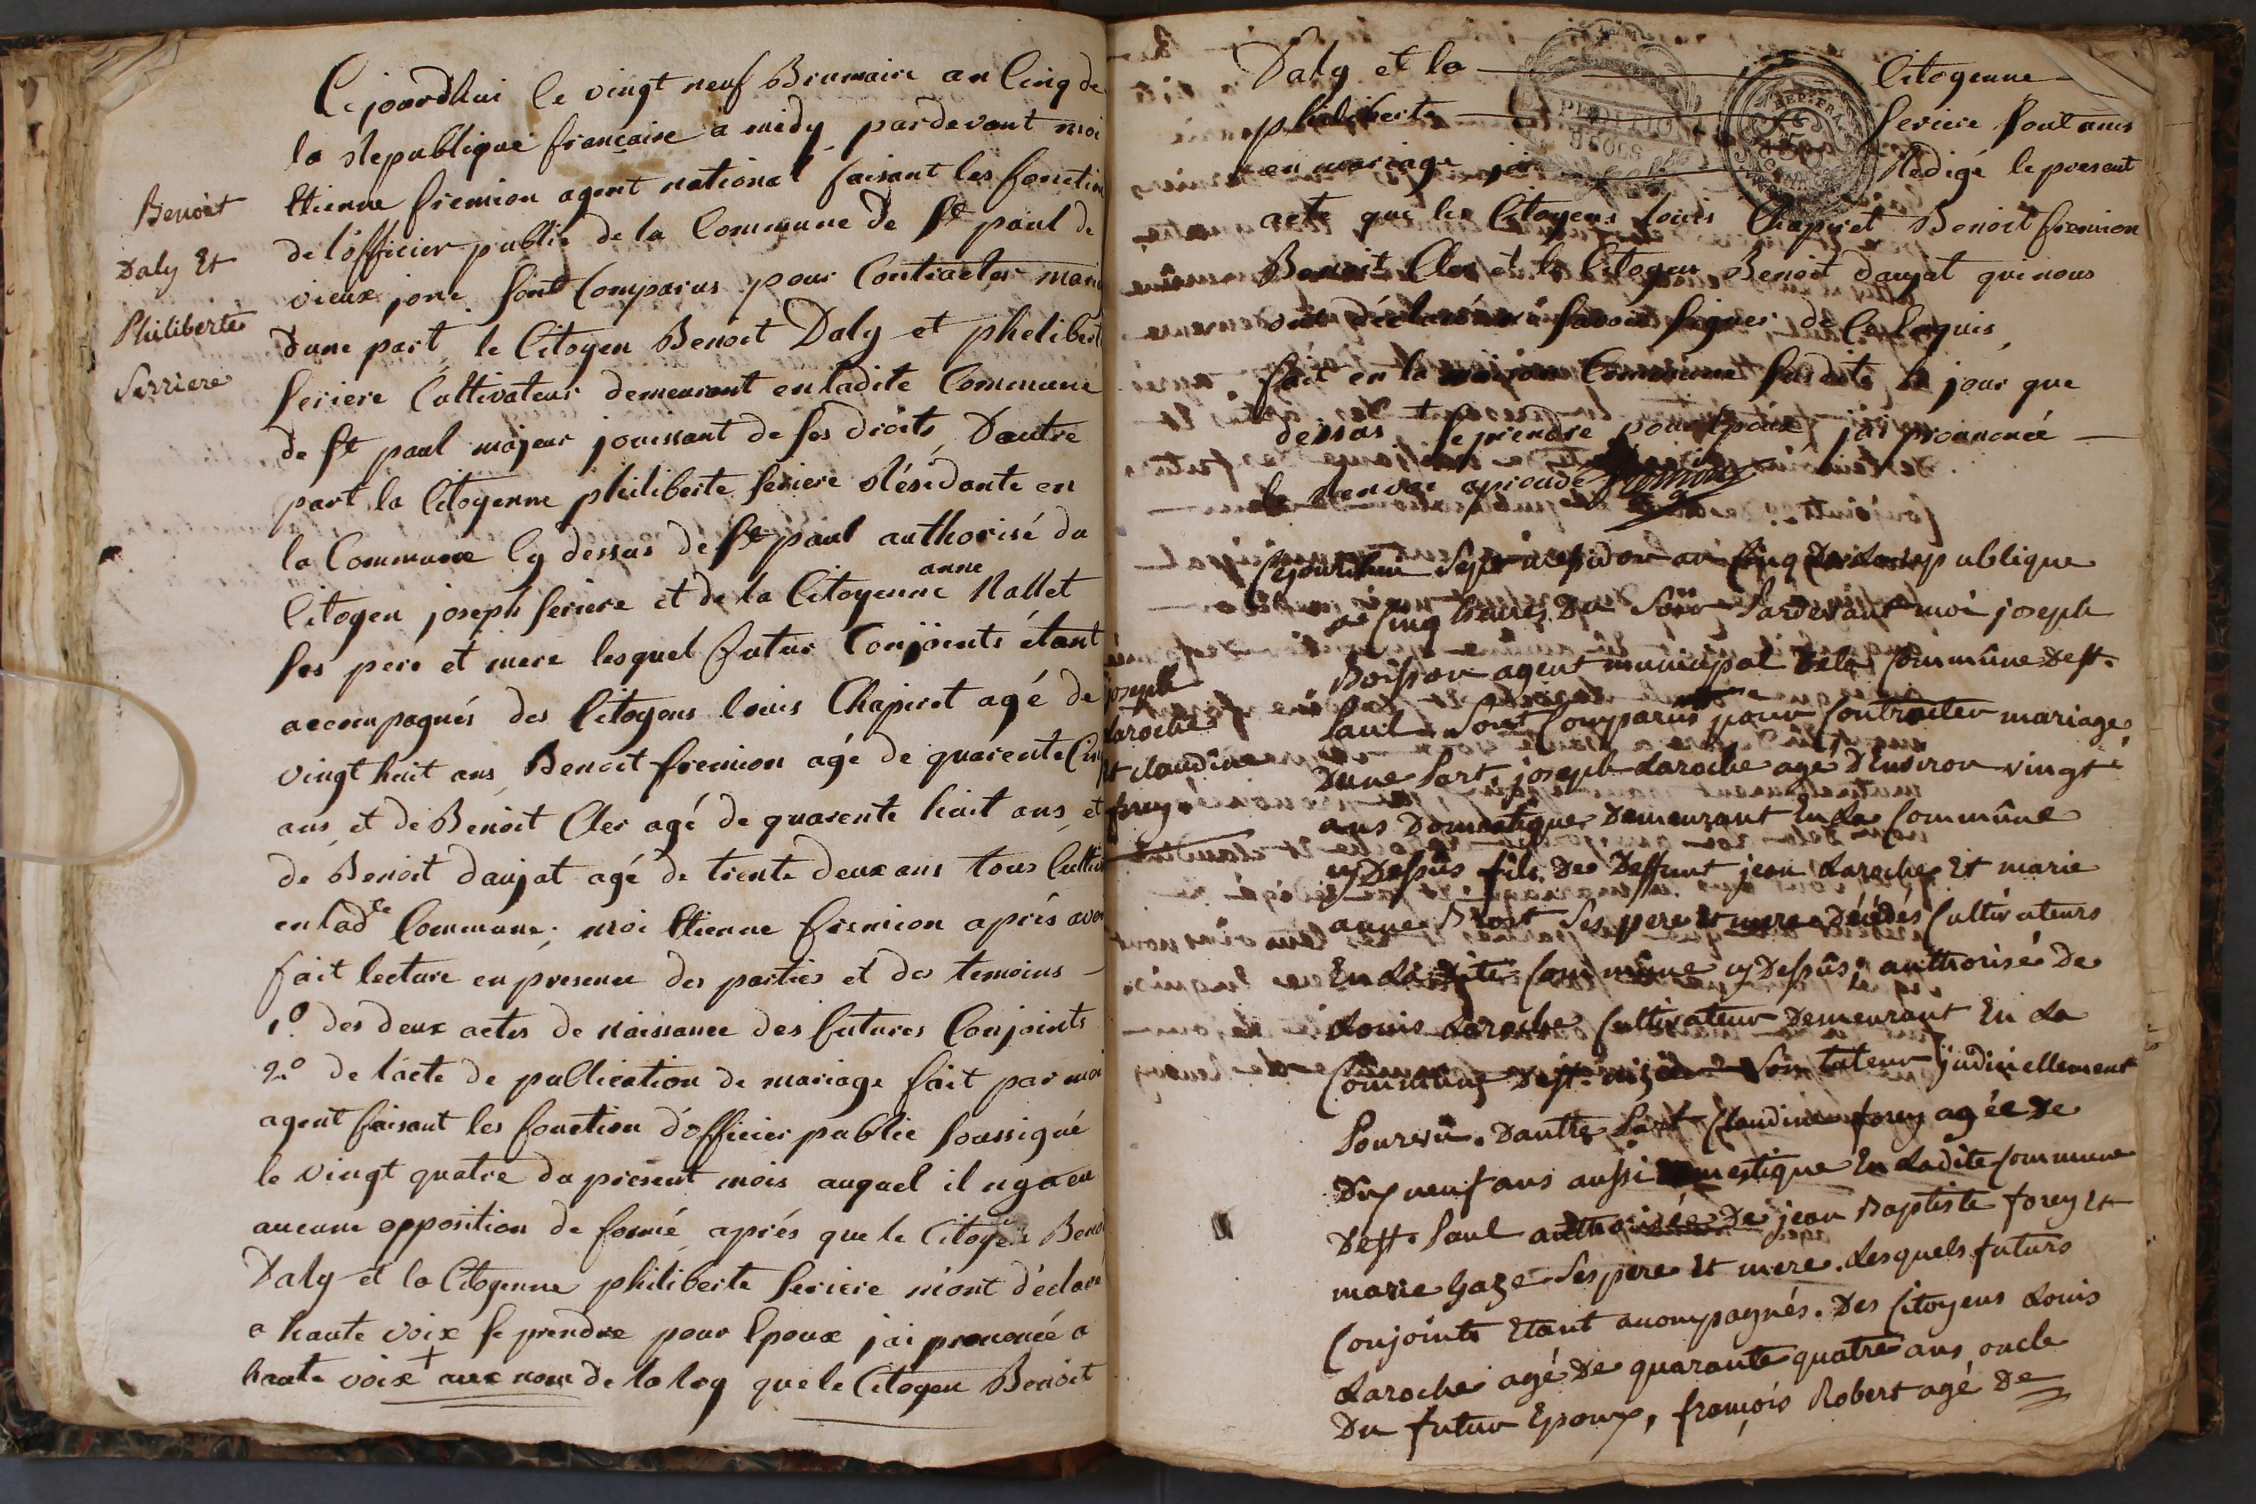 Benoit
Daly Et
Philiberte
Serriere
Cejourdhui le vingt neuf Brumaire an Cinq de
la Republique française a midy pardevant moi
Etienne fremion agent national faisant les fonction
de l'officier public de la Commune de St paul de
vieux jonc sont Comparus pour Contracter maria
Dune part le Citoyen Benoit Daly et phelibert
feriere Cultivateur demeurant en ladite Commune
de St paul majeur jouissant de ses droits, Dautre
part la Citoyenne philiberte feriere Résidante en
la Commune Cy dessus de St paul authorisé du
Citoyen joseph feriere et de la Citoyenne anne Rallet
ses pere et mere lesquel futur Conjoints étant
accompagnés des Citoyens louis Chapiret agé de
vingt huit ans, Benoit fremion agé de quarente Cin
ans et de Benoit Cler agé de quarente huit ans, et
de Benoit daujat agé de trente deux ans tous Cultiv
en ladte Commune; moi Etienne fremion après avoi
fait lecture en presence des parties et des temoins
1o. des deux actes de naissance des futures Conjoints
2.o de lacte de publication de mariage fait par moi
agent faisant les fonction d'officier public soussigné
le vingt quatre du present mois auquel il ny a eu
aucune opposition de formé aprés que le Citoyen Benoi
Daly et la Citoyenne philiberte feriere m'ont déclaré
a haute voix se prendre pour Epoux j'ai prononcé a
haute voix + aux nom de la loy que le Citoyen Benoit
Daly et la Citoyenne
philiberte feriere sont unis
en mariage jai Redigé le present
acte que les Citoyens louis Chapiret Benoit fremion
Benoit Cler et le Citoyen Benoit daujat qui nous
ont déclaré ne savoir signer de Ce Requis,
fait en la maison Commune susdite le jour que
dessus + se prendre pour Epoux j'ai prononcé
le Renvoi aprouvé fremion
joseph
Laroche
Et claudine
forey.
Cejourdhui sept messidor an Cinq de la Republique
a Cinq heures du soir Pardevant moi joseph
Boisson agent municipal de la Commûne de St.
Paul sont Comparus pour Contracter mariage,
Dune Part, joseph Laroche agé d'Environ vingt
ans Domestique Demeurant En la Commûne
cy Dessus fils De Deffunt jean Laroche Et marie
anne Brost ses pere Et mere Décédés Cultivateurs
En Ladite Commûne cy Dessus, authorisé De
Louis Laroche Cultivateur Demeurant En La
Commune De St. nizier son tuteur judiciellement
Pourvû. Dautre Part Claudine forey agée De
Dix neuf ans aussi Domestique En Ladite Commune
De St. Paul authorisée De jean Baptiste forey Et
marie Gaze ses pere Et mere. Lesquels futurs
Conjoints Etant acompagnés. Des Citoyens Louis
Laroche agé De quarante quatre ans oncle
Du futur Epoux, françois Robert agé De